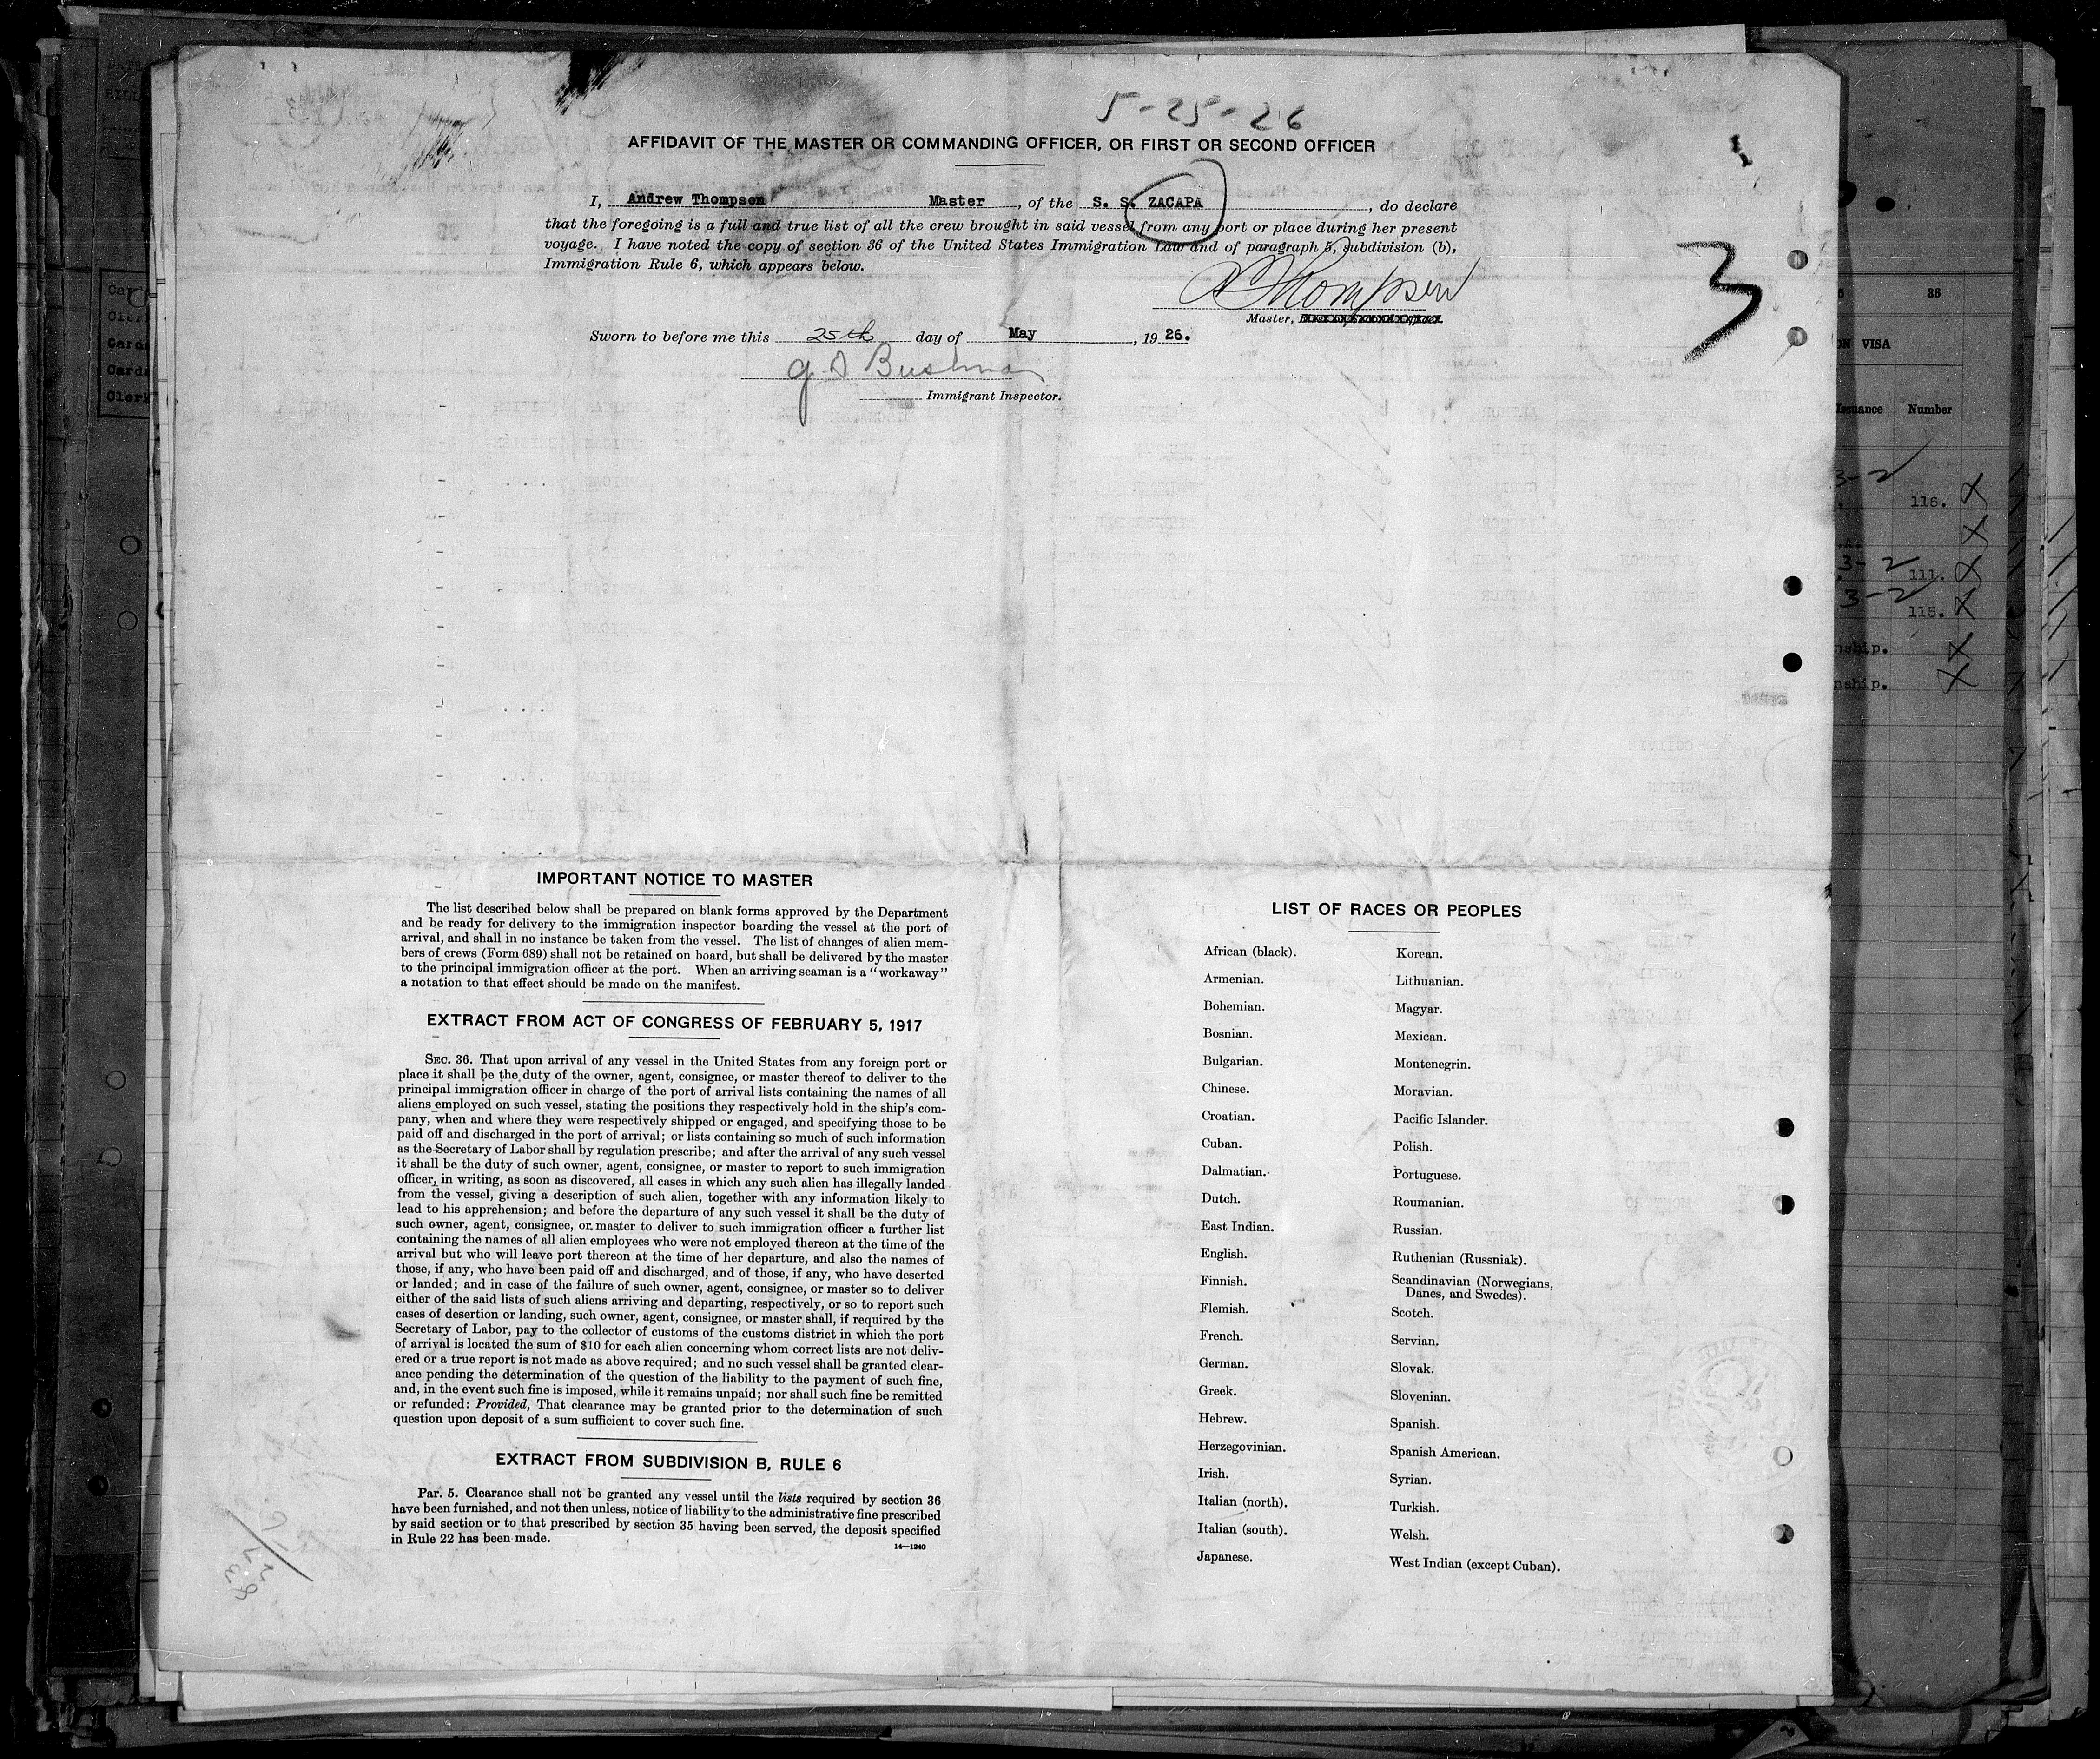 5-25-26
AFFIDAVIT OF THE MASTER OR COMMANDING OFFICER, OR FIRST OR SECOND OFFICER
I, Andrew Thompson Master, of the S. S. ZACAPA, do declare
that the foregoing is a full and true list of all the crew brought in said vessel from any port or place during her present
voyage. I have noted the copy of section 36 of the United States Immigration Law and of paragraph 5, subdivision (b),
Immigration Rule 6, which appears below.
A Thompson
Master,
3
Sworn to before me this 25th day of May, 1926.
G S Bushman
Immigrant Inspector.
36
ON VISA
Issuance Number
3-2
116.
3-2
111.
3-2
115.
nship.
nship.
IMPORTANT NOTICE TO MASTER
The list described below shall be prepared on blank forms approved by the Department
and be ready for delivery to the immigration inspector boarding the vessel at the port of
arrival, and shall in no instance be taken from the vessel. The list of changes of alien mem-
bers of crews (Form 689) shall not be retained on board, but shall be delivered by the master
to the principal immigration officer at the port. When an arriving seaman is a "workaway"
a notation to that effect should be made on the manifest.
EXTRACT FROM ACT OF CONGRESS OF FEBRUARY 5, 1917
SEC. 36. That upon arrival of any vessel in the United States from any foreign port or
place it shall be the duty of the owner, agent, consignee, or master thereof to deliver to the
principal immigration officer in charge of the port of arrival lists containing the names of all
aliens employed on such vessel, stating the positions they respectively hold in the ship's com-
pany, when and where they were respectively shipped or engaged, and specifying those to be
paid off and discharged in the port of arrival; or lists containing so much of such information
as the Secretary of Labor shall by regulation prescribe; and after the arrival of any such vessel
it shall be the duty of such owner, agent, consignee, or master to report to such immigration
officer, in writing, as soon as discovered, all cases in which any such alien has illegally landed
from the vessel, giving a description of such alien, together with any information likely to
lead to his apprehension; and before the departure of any such vessel it shall be the duty of
such owner, agent, consignee, or master to deliver to such immigration officer a further list
containing the names of all alien employees who were not employed thereon at the time of the
arrival but who will leave port thereon at the time of her departure, and also the names of
those, if any, who have been paid off and discharged, and of those, if any, who have deserted
or landed; and in case of the failure of such owner, agent, consignee, or master so to deliver
either of the said lists of such aliens arriving and departing, respectively, or so to report such
cases of desertion or landing, such owner, agent, consignee, or master shall, if required by the
Secretary of Labor, pay to the collector of customs of the customs district in which the port
of arrival is located the sum of $10 for each alien concerning whom correct lists are not deliv-
ered or a true report is not made as above required; and no such vessel shall be granted clear-
ance pending the determination of the question of the liability to the payment of such fine,
and, in the event such fine is imposed, while it remains unpaid; nor shall such fine be remitted
or refunded: Provided, That clearance may be granted prior to the determination of such
question upon deposit of a sum sufficient to cover such fine.
EXTRACT FROM SUBDIVISION B, RULE 6
Par. 5. Clearance shall not be granted any vessel until the lists required by section 36
have been furnished, and not then unless, notice of liability to the administrative fine prescribed
by said section or to that prescribed by section 35 having been served, the deposit specified
in Rule 22 has been made.
14—1240
LIST OF RACES OR PEOPLES
African (black).
Armenian.
Bohemian.
Bosnian.
Bulgarian.
Chinese.
Croatian.
Cuban.
Dalmatian.
Dutch.
East Indian.
English.
Finnish.
Flemish.
French.
German.
Greek.
Hebrew.
Herzegovinian.
Irish.
Italian (north).
Italian (south).
Japanese.
Korean.
Lithuanian.
Magyar.
Mexican.
Montenegrin.
Moravian.
Pacific Islander.
Polish.
Portuguese.
Roumanian.
Russian.
Ruthenian (Russniak).
Scandinavian (Norwegians,
Danes, and Swedes).
Scotch.
Servian.
Slovak.
Slovenian.
Spanish.
Spanish American.
Syrian.
Turkish.
Welsh.
West Indian (except Cuban).